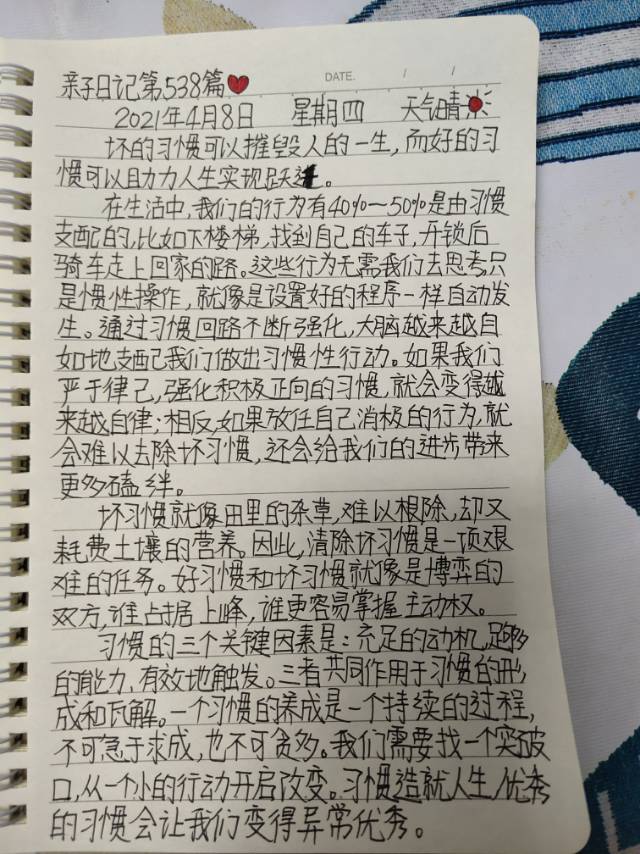 亲子日记第538篇
DATE. / /
2021年4月8日 星期四 天气晴
坏的习惯可以摧毁人的一生,而好的习
惯可以助力人生实现跃迁。
在生活中,我们的行为有40%—50%是由习惯
支配的,比如下楼梯,找到自己的车子,开锁后
骑车走上回家的路。这些行为无需我们去思考,只
是惯性操作,就像是设置好的程序一样自动发
生。通过习惯回路不断强化,大脑越来越自
如地支配己我们做出习惯性行动。如果我们
严于律己,强化积极正向的习惯,就会变得越
来越自律;相反,如果放任自己消极的行为,就
会难以去除坏习惯,还会给我们的进步带来
更多磕绊。
坏习惯就像田里的杂草,难以根除,却又
耗费土壤的营养。因此,清除坏习惯是一项艰
难的任务。好习惯和坏习惯就像是博弈的
双方,谁占据上峰,谁更容易掌握主动权。
习惯的三个关键因素是:充足的动机,足够
的能力,有效地触发。三者共同作用于习惯的形
成和瓦解。一个习惯的养成是一个持续的过程,
不可急于求成,也不可贪多。我们需要找一个突破
口,从一个小的行动开启改变。习惯造就人生,优秀
的习惯会让我们变得异常优秀。